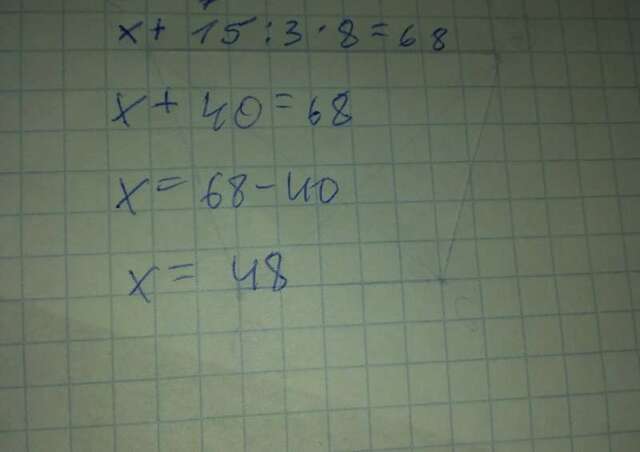 x + 15 : 3 · 8 = 68
x + 40 = 68
x = 68 - 40
x = 48